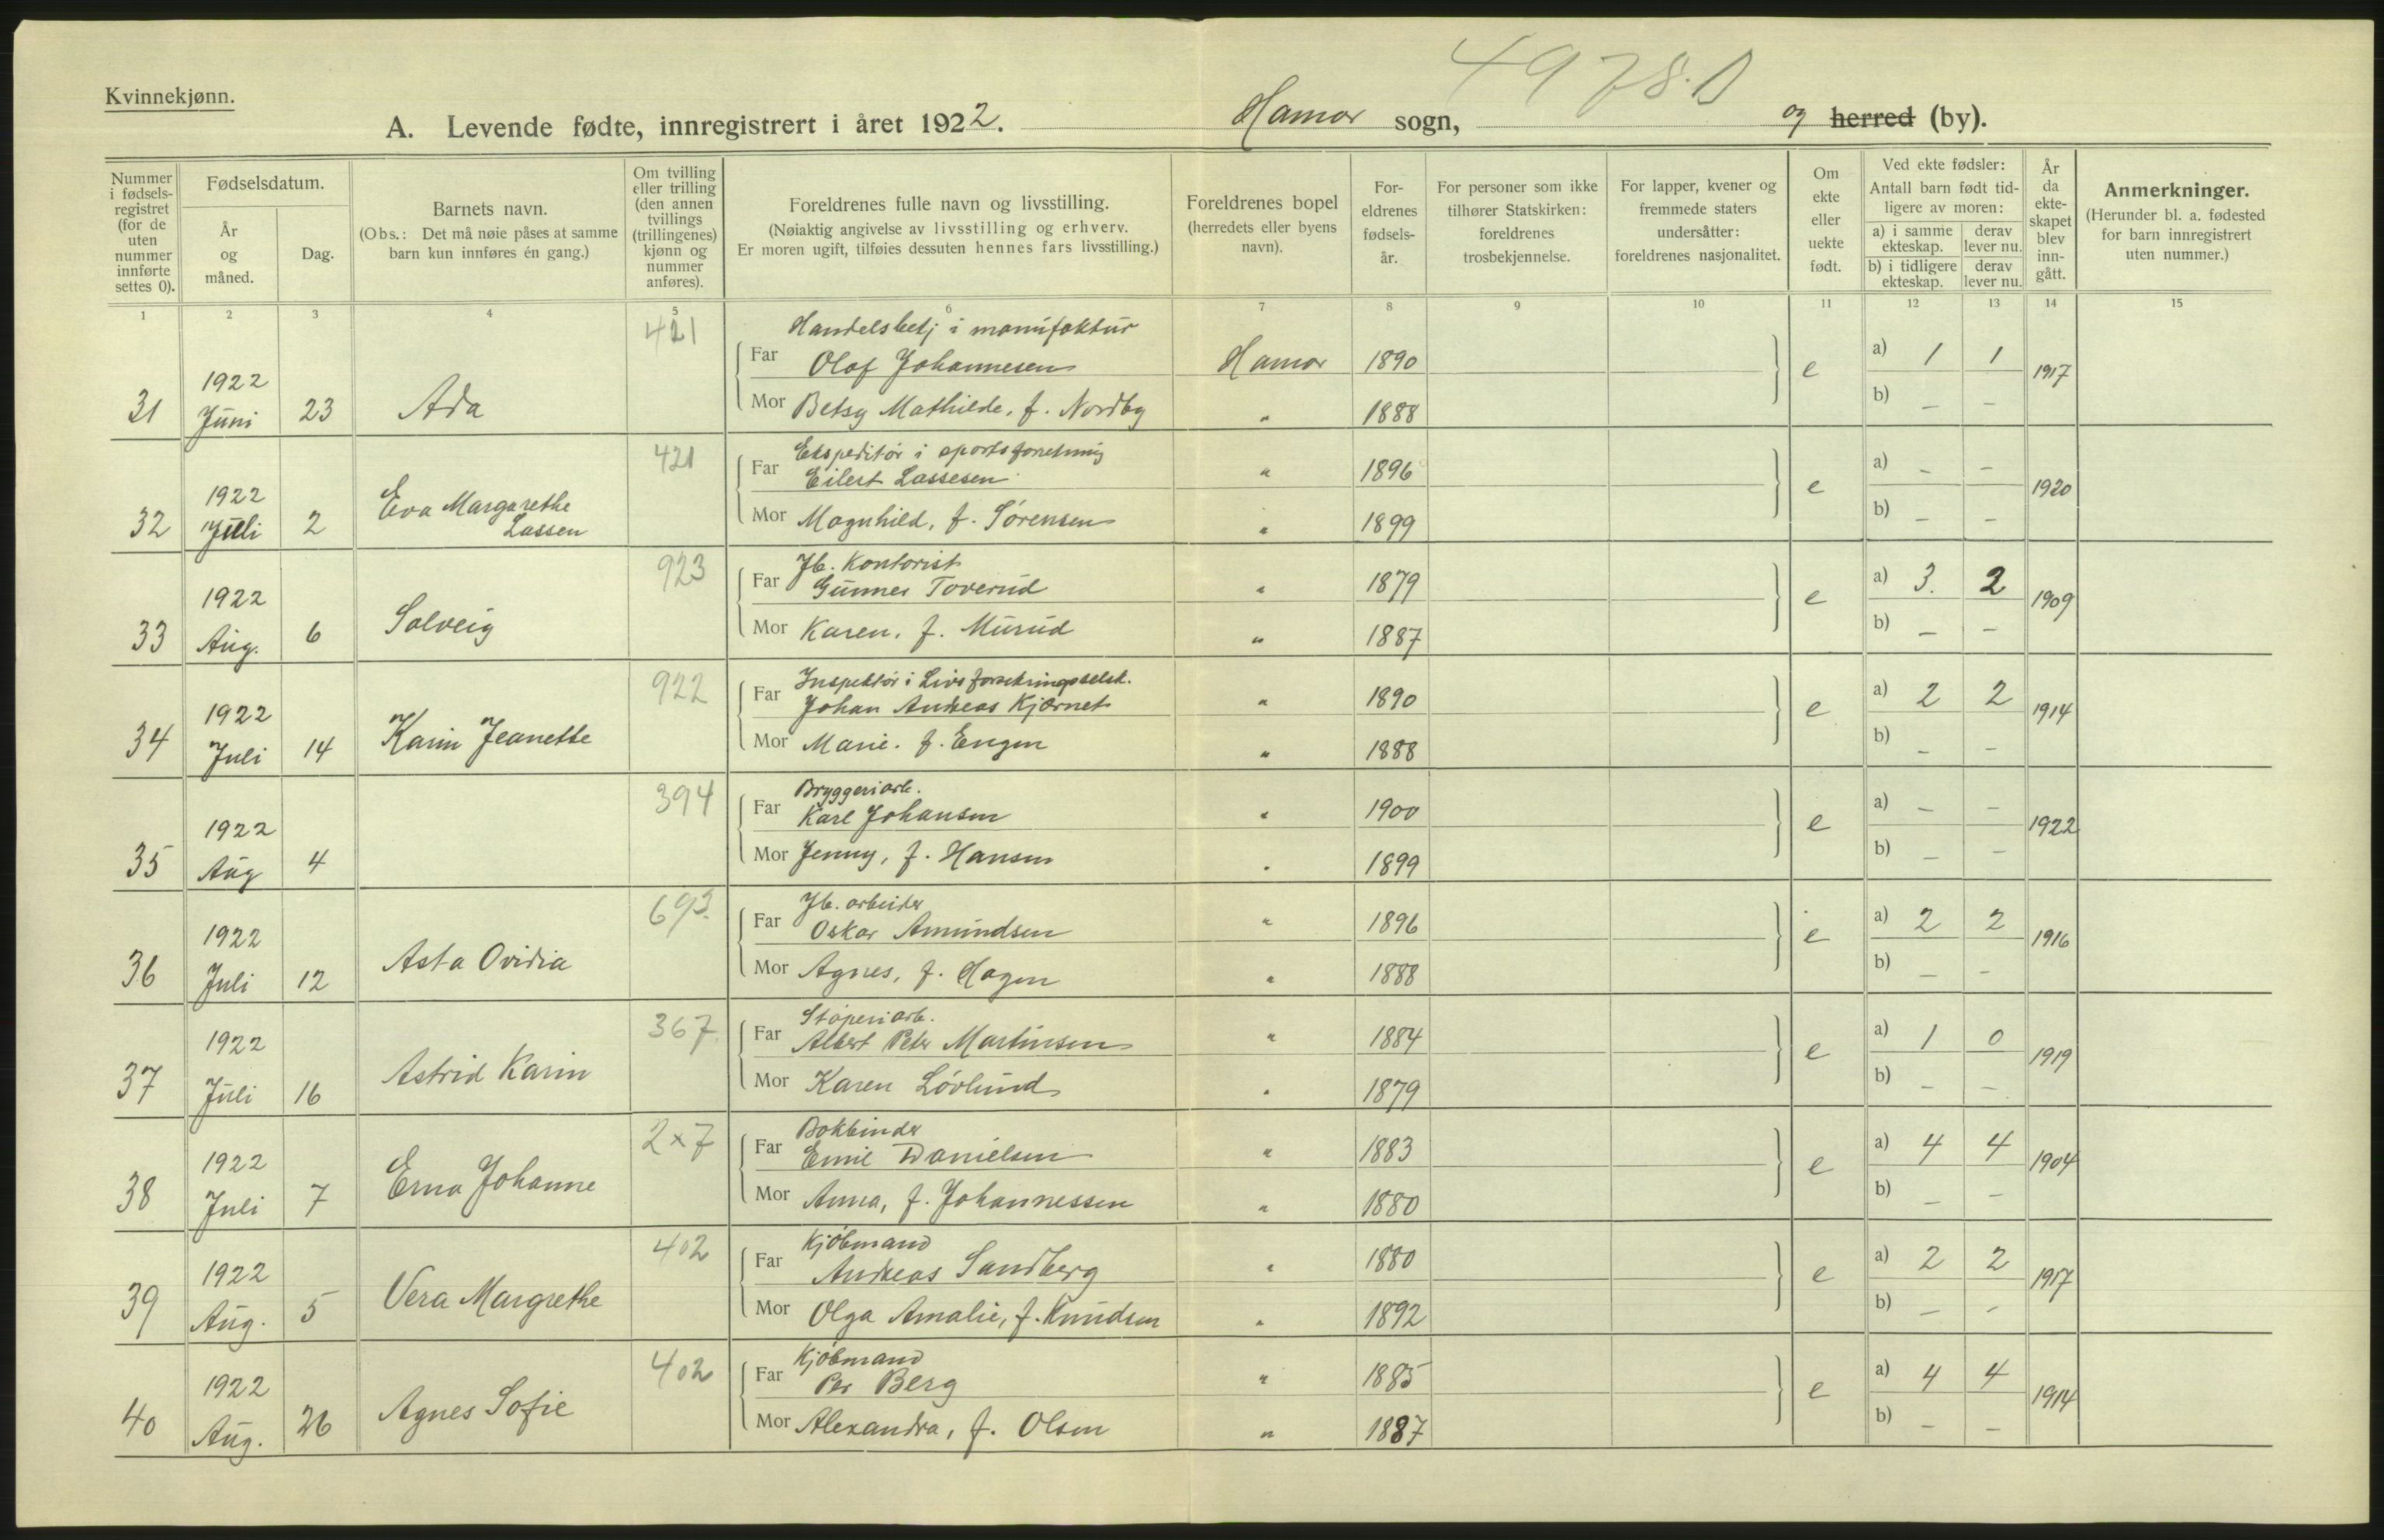 4978.D
Kvinnekjønn.
A. Levende fødte, innregistrert i året 1922. Hamar sogn, og herred (by).
Nummer i fødsels-registret (for de uten nummer innførte settes 0).
Fødselsdatum.
År og måned.
Dag.
Barnets navn.
(Obs.: Det må nøie påses at samme barn kun innføres én gang.)
Om tvilling eller trilling (den annen tvillings (trillingenes) kjønn og nummer anføres).
Foreldrenes fulle navn og livsstilling.
(Nøiaktig angivelse av livsstilling og erhverv.
Er moren ugift, tilføies dessuten hennes fars livsstilling.)
Foreldrenes bopel
(herredets eller byens navn).
For-eldrenes fødsels-år.
For personer som ikke tilhører Statskirken: foreldrenes trosbekjennelse.
For lapper, kvener og fremmede staters undersåtter: foreldrenes nasjonalitet.
Om ekte eller uekte født.
Ved ekte fødsler:
Antall barn født tid-ligere av moren:
a) i samme ekteskap. derav lever nu.
b) i tidligere ekteskap. derav lever nu.
År da ekte-skapet blev inn-gått.
Anmerkninger.
(Herunder bl. a. fødested for barn innregistrert uten nummer.)
1 2 3 4 5 6 7 8 9 10 11 12 13 14 15
421 Handelsbetj i manufaktur
31 1922 Juni 23 Ada Far Olaf Johannesen Hamar 1890 e a) 1 1 1917
Mor Betsy Mathilde, f. Nordby " 1888 b) – –
421 Ekspeditør i sportsforretning
32 1922 Juli 2 Eva Margarethe Lassen Far Eilert Lassesen " 1896 e a) – – 1920
Mor Magnhild, f. Sørensen " 1899 b) – –
923 Jb. Kontorist
33 1922 Aug. 6 Solveig Far Gunner Toverud " 1879 e a) 3. 2 1909
Mor Karen, f. Murud " 1887 b) – –
922 Inspektør i Livsforsikringsselsk.
34 1922 Juli 14 Karin Jeanette Far Johan Andreas Kjørnet " 1890 e a) 2 2 1914
Mor Marie. f. Engen " 1888 b) – –
394 Bryggeriarb.
35 1922 Aug 4 Far Karl Johansen " 1900 e a) – – 1922
Mor Jenny, f. Hansen " 1899 b) – –
693. Jb. arbeider
36 1922 Juli 12 Asta Ovidia Far Oskar Amundsen " 1896 e a) 2 2 1916
Mor Agnes, f. Hagen " 1888 b) – –
367. Støperiarb.
37 1922 Juli 16 Astrid Karin Far Albert Peter Martinsen " 1884 e a) 1 0 1919
Mor Karen Løvlund " 1879 b) – –
2x7 Bokbinder
38 1922 Juli 7 Erna Johanne Far Emil Danielsen " 1883 e a) 4 4 1904
Mor Anna, f. Johannessen " 1880 b) – –
402 Kjøbmand
39 1922 Aug. 5 Vera Margrethe Far Andreas Sandberg " 1880 e a) 2 2 1917
Mor Olga Amalie, f. Knudsen " 1892 b) – –
402 Kjøbmand
40 1922 Aug. 26 Agnes Sofie Far Per Berg " 1885 e a) 4 4 1914
Mor Alexandra, f. Olsen " 1887 b) – –